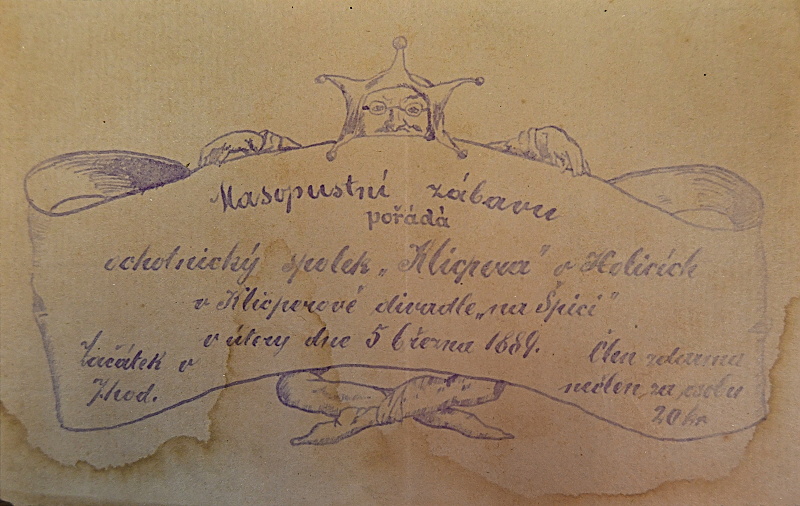 Masopustní zábavu
pořádá
ochotnický spolek „Klicpera" v Holicích
v Klicperově divadle „na Špici"
v úterý dne 5 března 1889.
Začátek v
7 hod.
Člen zdarma
nečlen za osobu
20 kr